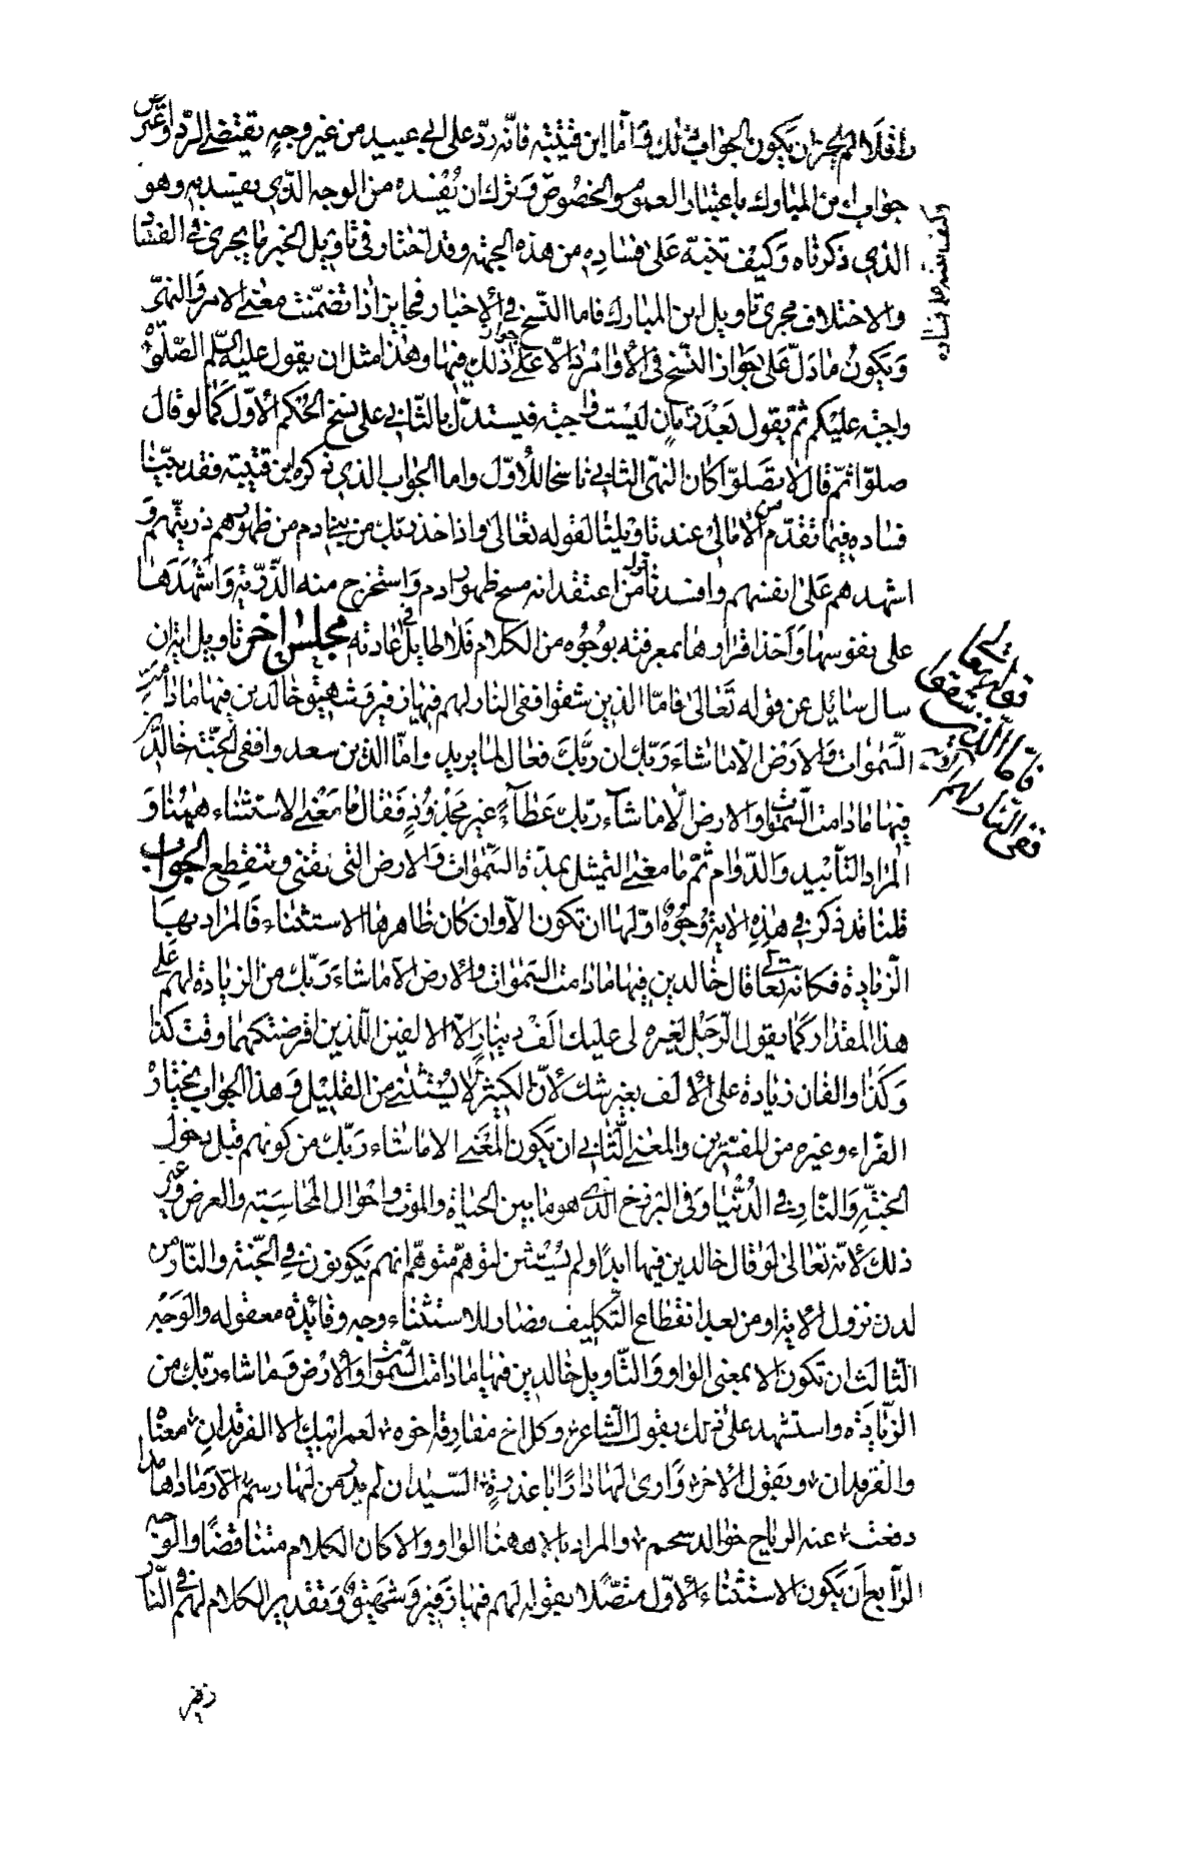 واقلا لم يجز ان يكون الجواب ذلك فاما ابن قتيبة فانه رد على ابي عبيد من غير وجه يقتضي الرد واعترض
جواب ابن المبارك باعتبار العموم والخصوص وترك ان يفسده من الوجه الذي يفسد به وهو
الذي ذكرناه وكيف تنبه على فساده من هذه الجهة وقد اختار في تاويل الخبر ما يجري في الفساد
والاختلاف مجرى تاويل ابن المبارك فاما النسخ في الاخبار فجايز اذا تضمنت معنى الامر والنهي
ويكون ما دل على جواز النسخ في الاوامر دالا على جواز ذلك فيها وهذا مثل ان يقول عليه السلم الصلوة
واجبة عليكم ثم يقول بعد زمان ليست واجبة فيستدل بالثاني على نسخ الحكم الاول كما لو قال
صلوا ثم قال لا تصلوا كان النهي الثاني ناسخا للاول واما الجواب الذي ذكره ابن قتيبة فقد بينا
فساده فيما تقدم من الامالي عند تاويلنا لقوله تعالى واذا خذ ربك من بني ادم من ظهورهم ذريتهم و
اشهدهم على انفسهم وافسدنا قول من اعتقد انه مسح ظهر ادم واستخرج منه الذرية واشهدها
على نفوسها واخذ اقرارها بمعرفته بوجوه من الكلام فلا طايل في اعادته مجلس اخر تاويل اية ان
سال سائل عن قوله تعالى فاما الذين شقوا ففي النار لهم فيها زفير وشهيق خالدين فيها ما دامت
السموات والارض الا ما شاء ربك ان ربك فعال لما يريد واما الذين سعدوا ففي الجنة خالدين
فيها ما دامت السموات والارض الا ما شاء ربك عطاء غير مجذوذ فقال ما معنى الاستثناء ههنا و
المراد التأبيد والدوام ثم ما معنى التمثيل بمدة السموات والارض التي تفنى وتنقطع الجواب
قلنا قد ذكر في هذه الاية وجوه اولها ان تكون الا وان كان ظاهرها الاستثناء فالمراد بها
الزيادة فكانه تعالى قال خالدين فيها ما دامت السموات والارض الا ما شاء ربك من الزيادة لهم على
هذا المقدار كما يقول الرجل لغيره لي عليك الف دينار الا الالفين اللذين اقرضتكهما وقت كذا
وكذا والفان زيادة على الالف بغير شك لان الكثير لا يستثنى من القليل وهذا الجواب يختاره
الفراء وغيره من المفسرين والمعنى الثاني ان يكون المعنى الا ما شاء ربك من كونهم قبل دخول
الجنة والنار في الدنيا وفي البرزخ الذي هو ما بين الحياة والموت واحوال المحاسبة والعرض وغير
ذلك لانه تعالى لو قال خالدين فيها ابدا ولم يستثن لتوهم متوهم انهم يكونون في الجنة والنار من
لدن نزول الاية او من بعد انقطاع التكليف فصار للاستثناء وجه وفائدة معقوله والوجه
الثالث ان تكون الا بمعنى الواو والتاويل خالدين فيها ما دامت السموات والارض وما شاء ربك من
الزيادة واستشهد على ذلك بقول الشاعر وكل اخ مفارقه اخوه لعمر ابيك الا الفرقدان معناه
والفرقدان وبقول الاخر وارى لها دارا باغدرة السيدان لم يدرس لها رسم الا رمادا هامدا
دفعت عنه الرياح خوالد سحم والمراد بالا ههنا الواو والا كان الكلام متناقضا والوجه
الرابع ان يكون الاستثناء الاول متصلا بقوله لهم فيها زفير وشهيق وتقدير الكلام لهم في النار
زفير
وكيف تنبه على فساده
قوله تعالى
فاما الذين شقوا
ففي النار لهم